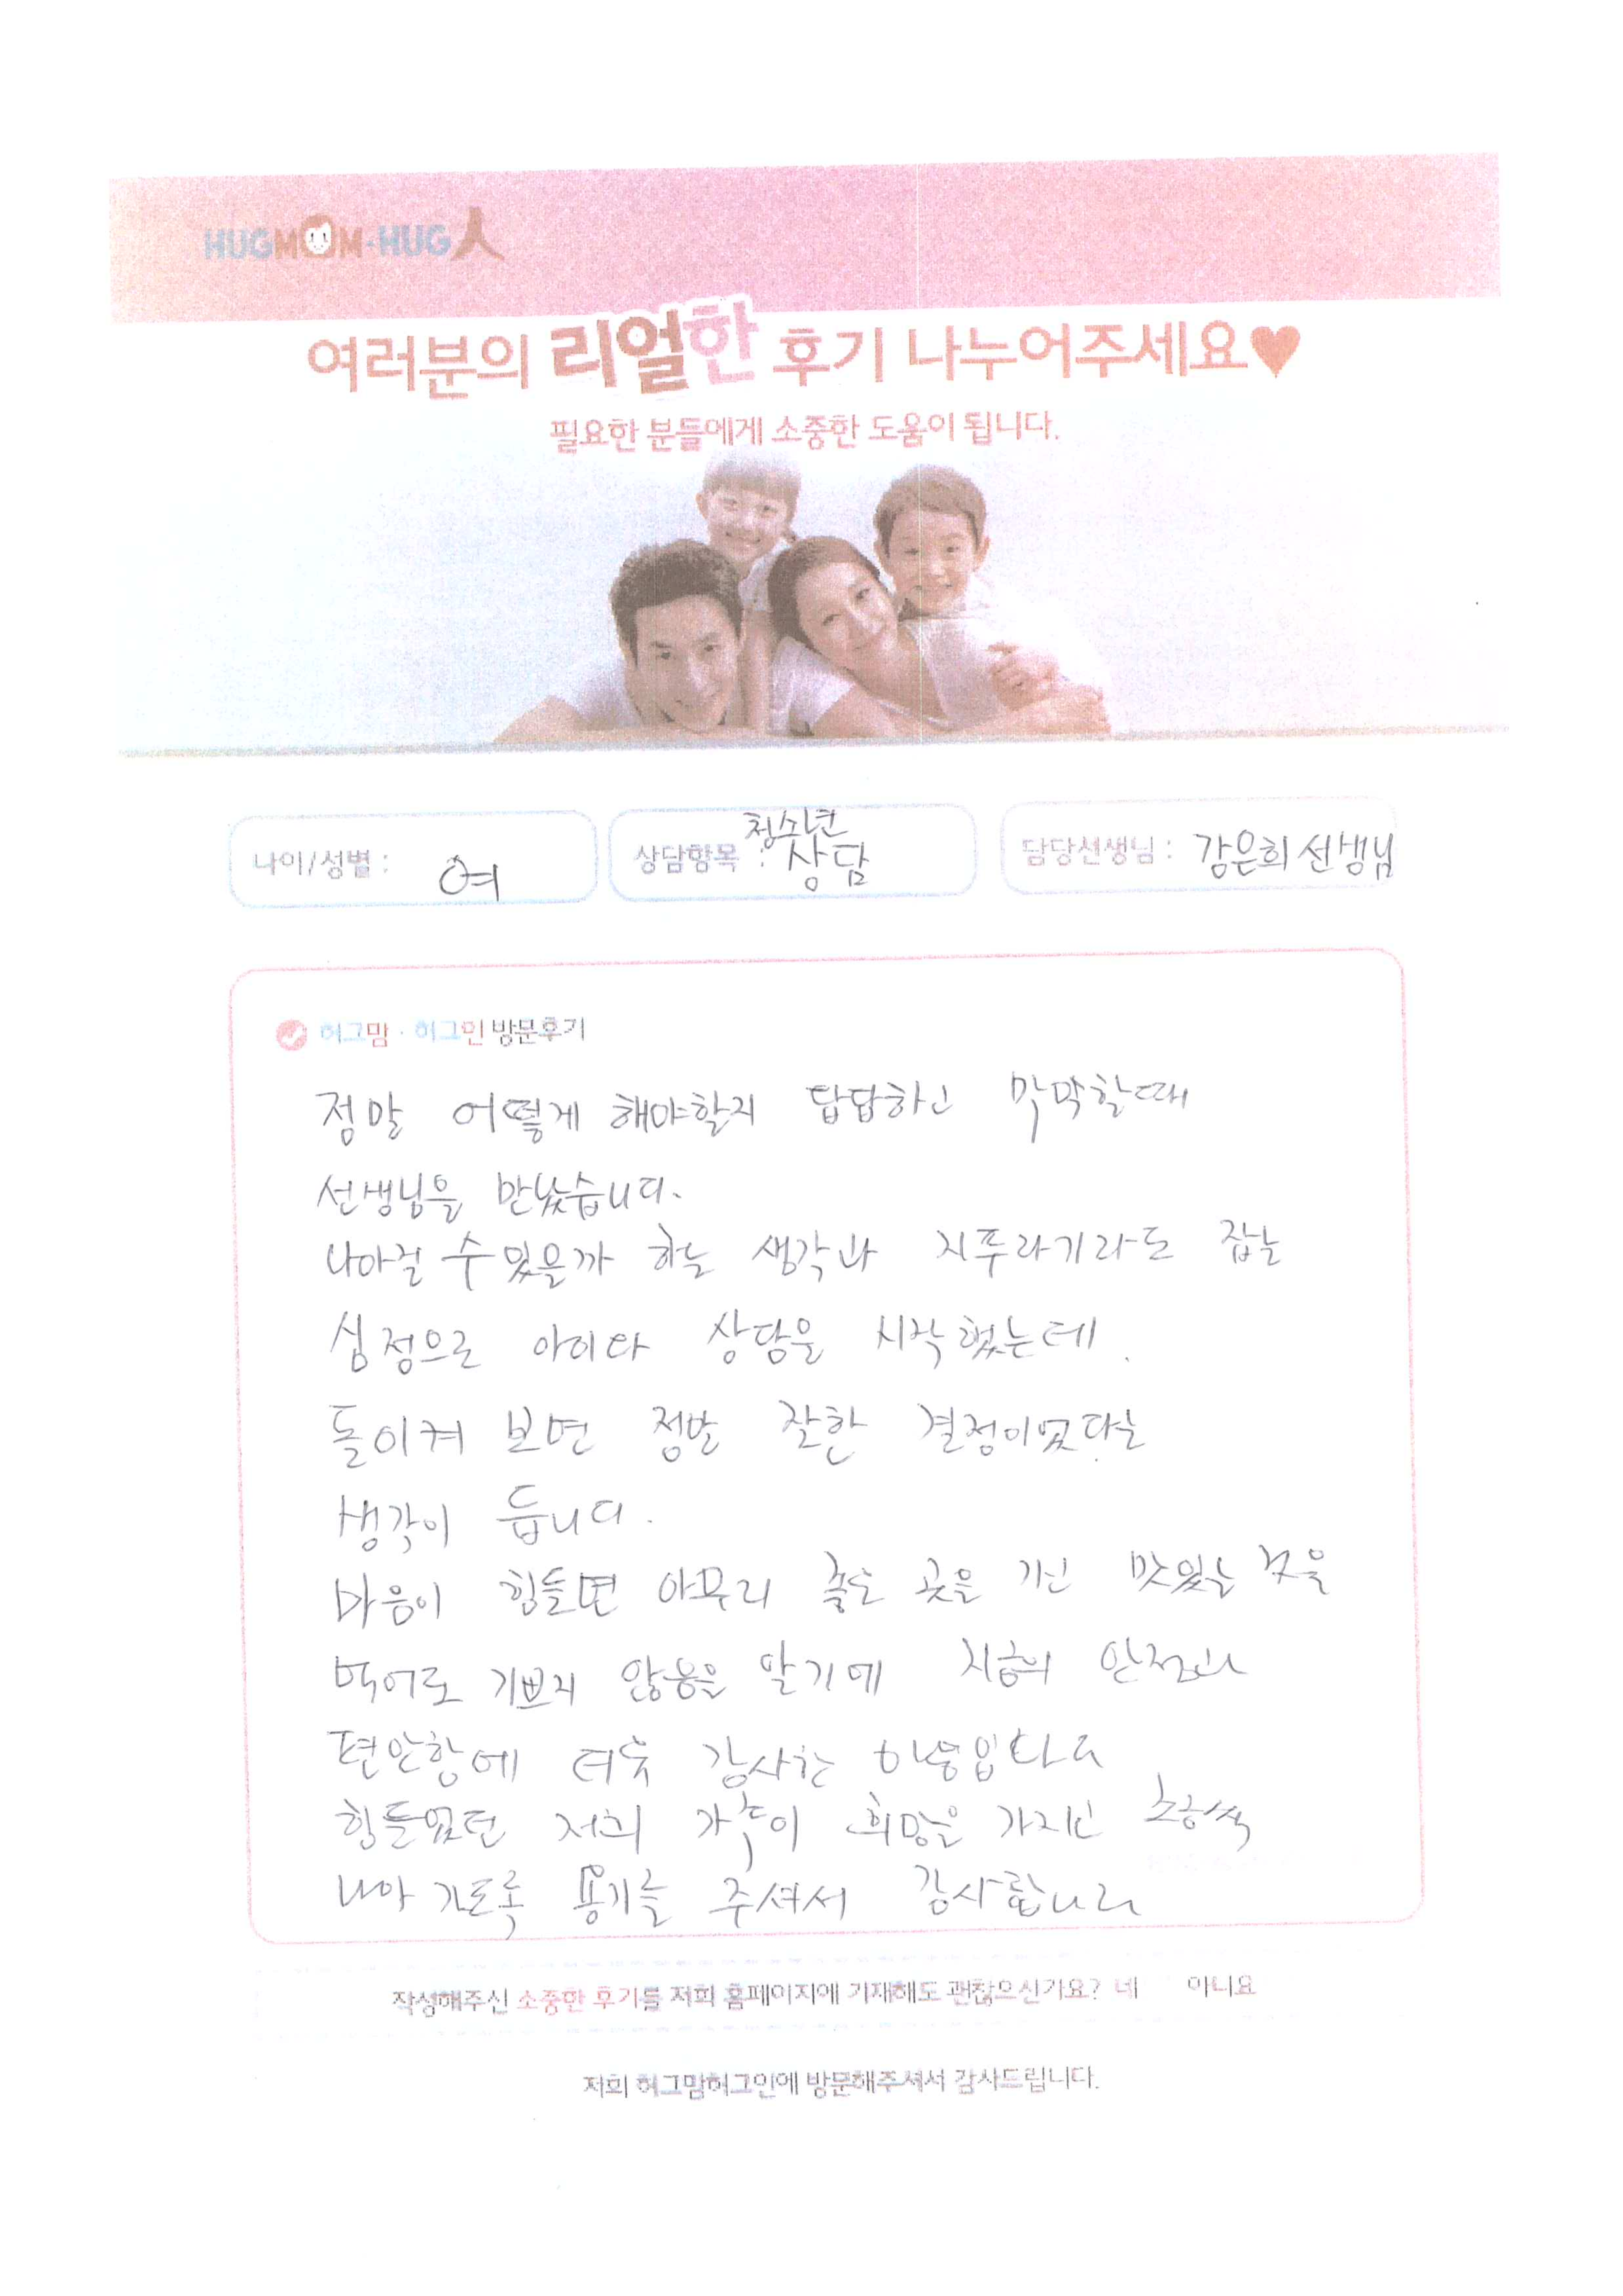 HUGMOM·HUG人
여러분의 리얼한 후기 나누어주세요♥
필요한 분들에게 소중한 도움이 됩니다.
나이/성별 : 여
상담항목 : 청소년 상담
담당선생님 : 감은희 선생님
허그맘·허그인 방문후기
정말 어떻게 해야할지 답답하고 막막할때
선생님을 만났습니다.
나아걸 수 있을까 하는 생각과 지푸라기라도 잡는
심정으로 아이와 상담을 시작했는데.
돌이켜 보면 정말 잘한 결정이었다는
생각이 듭니다.
마음이 힘들면 아무리 좋은 곳을 가고 맛있는 것을
먹어도 기쁘지 않음을 알기에 지금의 안정과
편안함에 더욱 감사한 마음입니다
힘들었던 저희 가족이 희망을 가지고 조금씩
나아 가도록 용기를 주셔서 감사합니다
작성해주신 소중한 후기를 저희 홈페이지에 기재해도 괜찮으신가요? 네 아니요
저희 허그맘허그인에 방문해주셔서 감사드립니다.